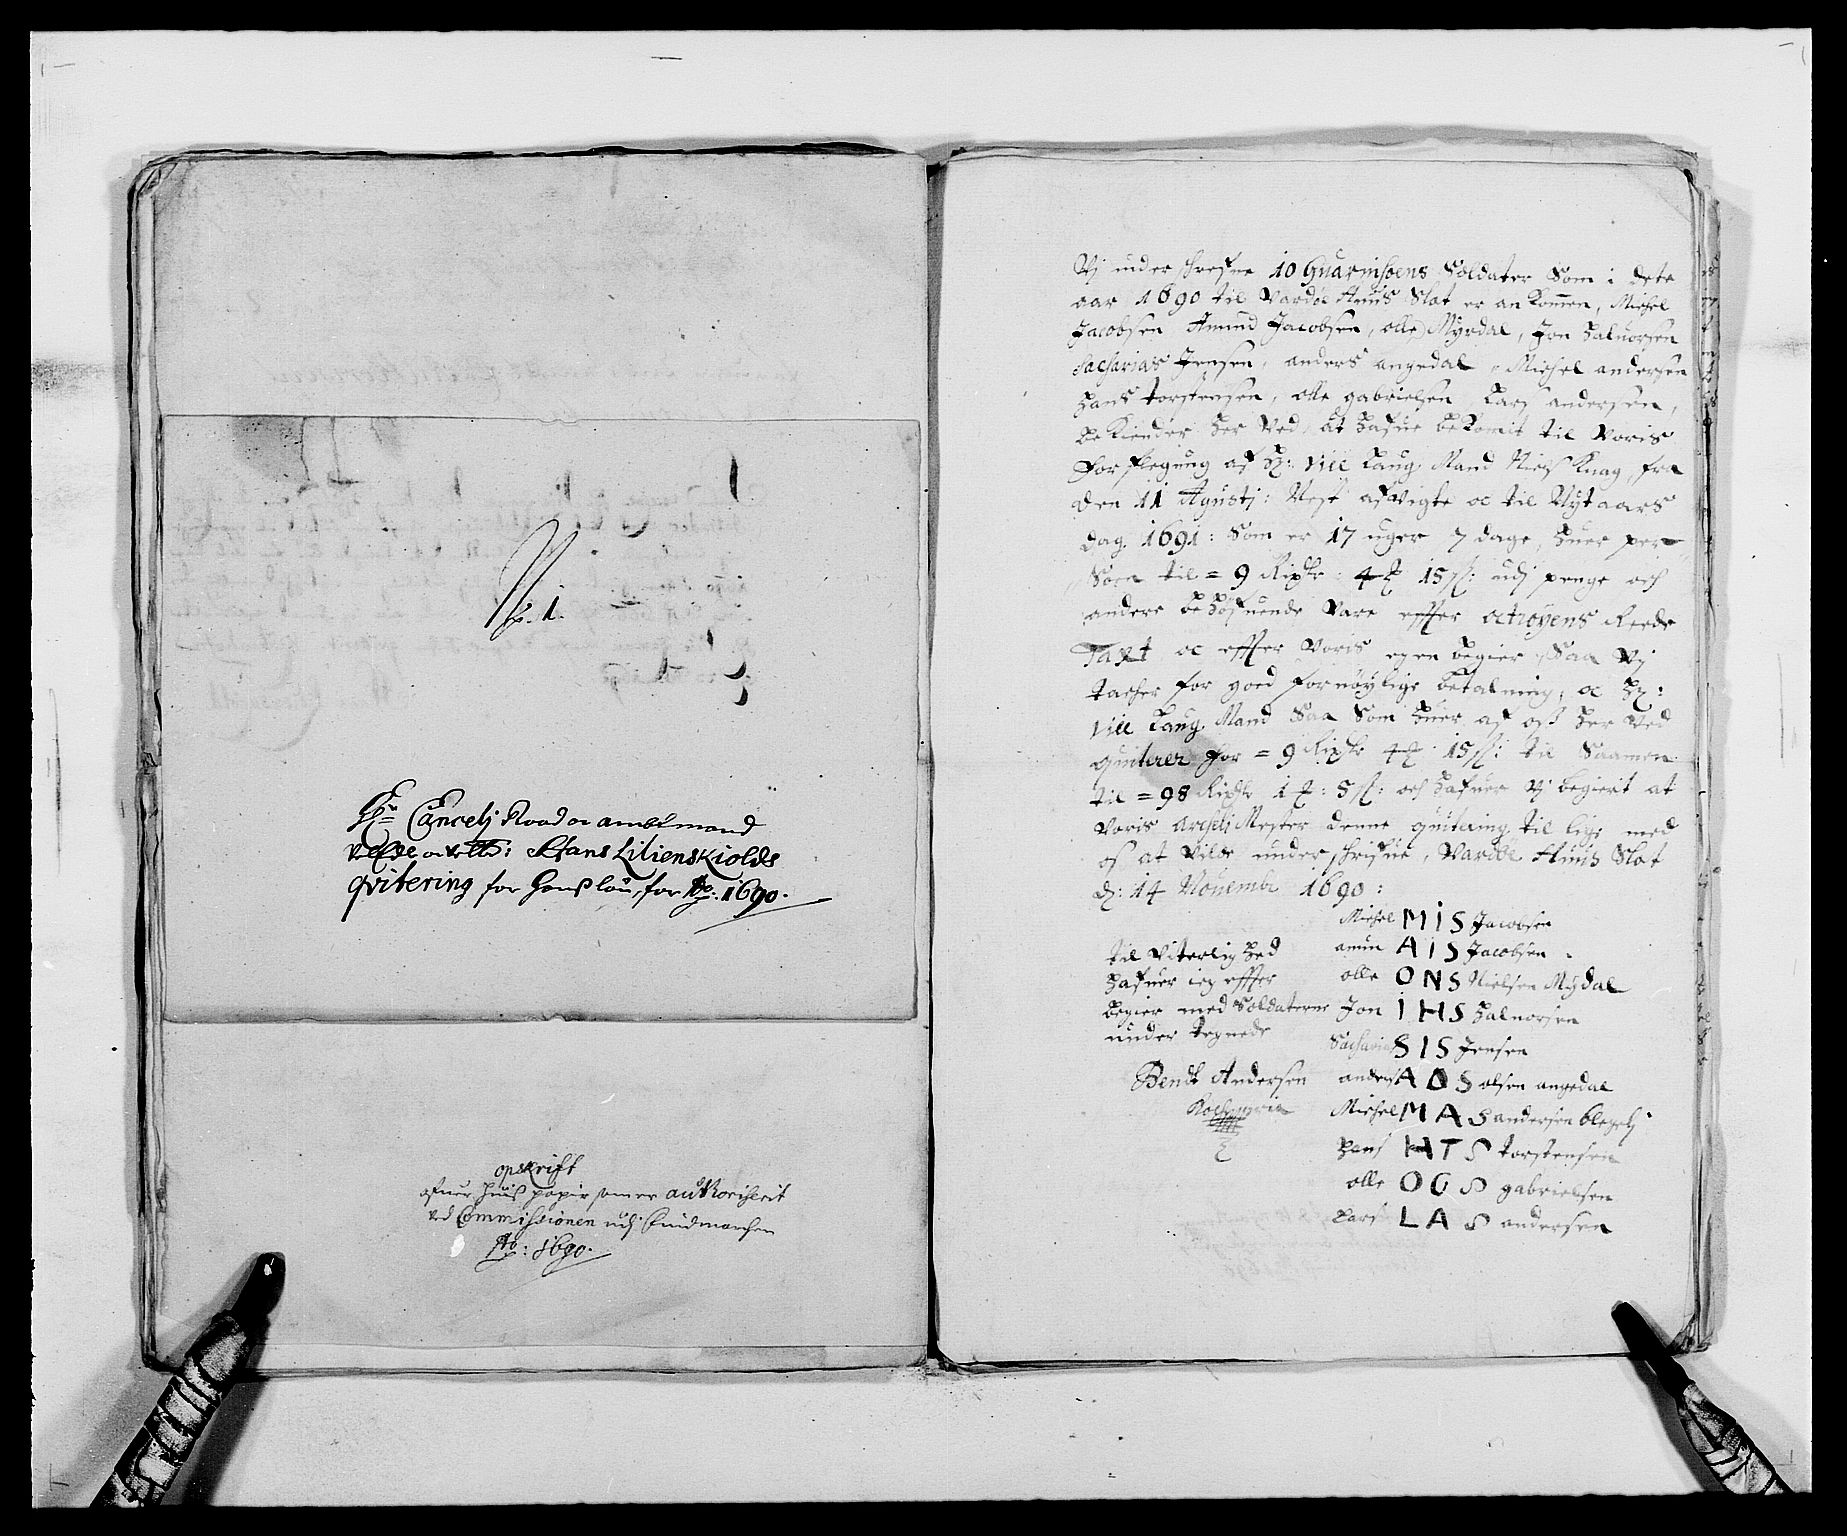 N: 1.
Hr: Cancelj Raad oc ambtmand
velEdle oc velb: Hans Lilienskiolds
qvitering for hans løn, for Ao: 1690.
opskrift
ofuer huis papir som er authoriserit
ved Commissionen udj findmarchen
Ao: 1690.
Vj under schrefne 10 Guarnisoens Soldater Som i dete
aar 1690 til Vardøe Huus Slot er an Kommen, Michel
Jacobsen Amund Jacobsen, olle Myrdal, Jon Haluorsen
Sacharias Jensen, anders angedal, Michel andersen
Hans torstensen, olle gabrielsen Lars andersen,
be Kiender Her Ved, at Hafue bekomit til Voris
forplegung af Hr: Vill Laug Mand Niels Knag, fra
den 11 Agustj: Nest afvigte oc til Nytaars
dag 1691: Som er 17 uger 7 dage, Huer per-
Soen til = 9 Rixdr 4 15 s: udj penge och
andere behøfuende Vare effter octroyens Reede
Taxt oc effter Voris egen begier, Saa Vj
tacher for goed fornøylige betalning, oc Hr:
Vill Laug Mand Saa Som Huer af os Her Ved
quiterer for = 9 Rixdr 4 15 s: til Saamen
til = 98 Rixdr 1 : 5 s: och Hafuer Vj begierit at
Voris Archelj Mester denne quitering til lige med
os at Vilde under schrifue, Vardøe Huus Slot
d: 14 Nouembr 1690:
Michel MIS Jacobsen
amun AIS Jacobsen
olle ONS Nielsen Mydal
Jon IHS Haluorsen
Sacharias SIS Jensen
anders AOS olsen angedal
Michel MAS andersen
Hans HTS torstensen
olle OGS gabrielsen
Lars LAS andersen
til Viterlig Hed
Hafuer ieg effter
begier med Soldaterne
under tegnede
Bendt Andersen